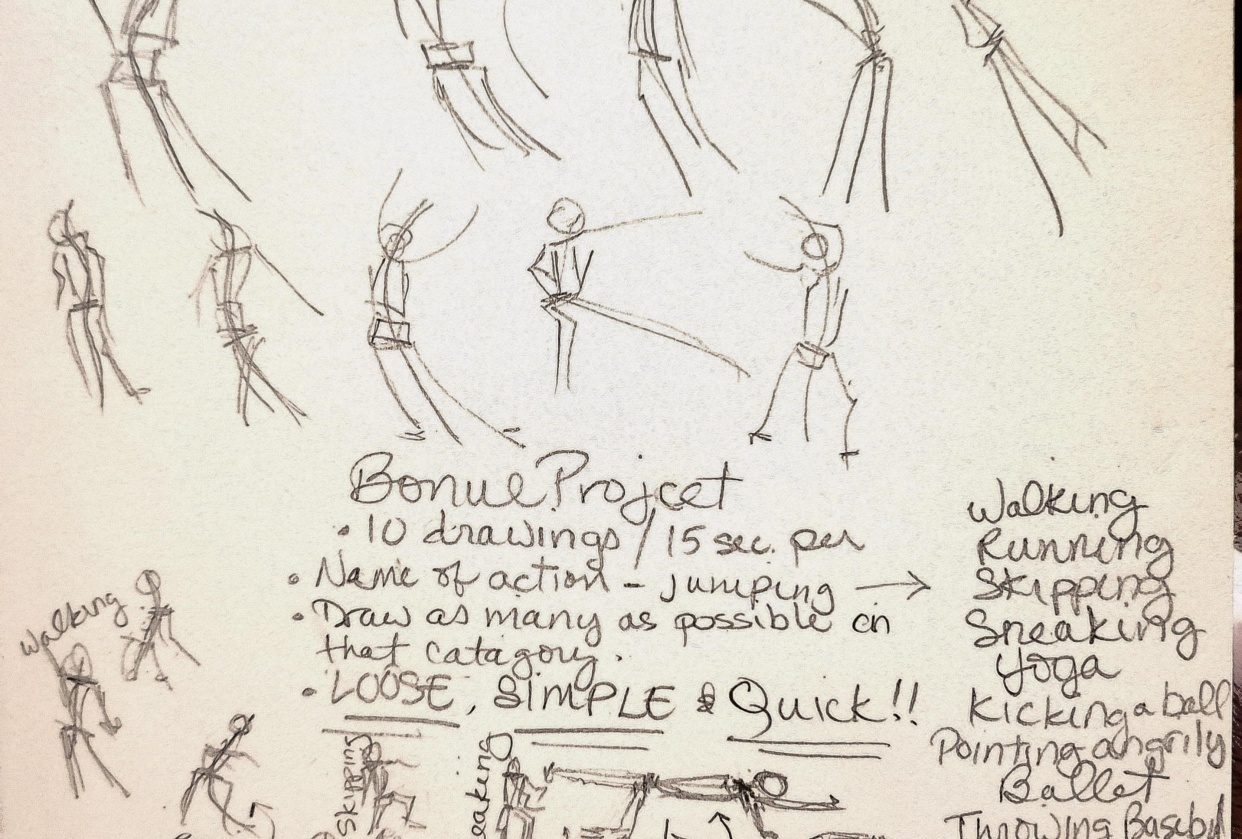 Bonue Projcet
• 10 drawings / 15 sec. per
• Name of action - jumping →
• Draw as many as possible on
that catagory.
• LOOSE, SIMPLE & Quick!!
Walking
Running
Skipping
Sneaking
Yoga
Kicking a ball
Pointing angrily
Ballet
Throwing Baseball
Walking
Skipping
eaking